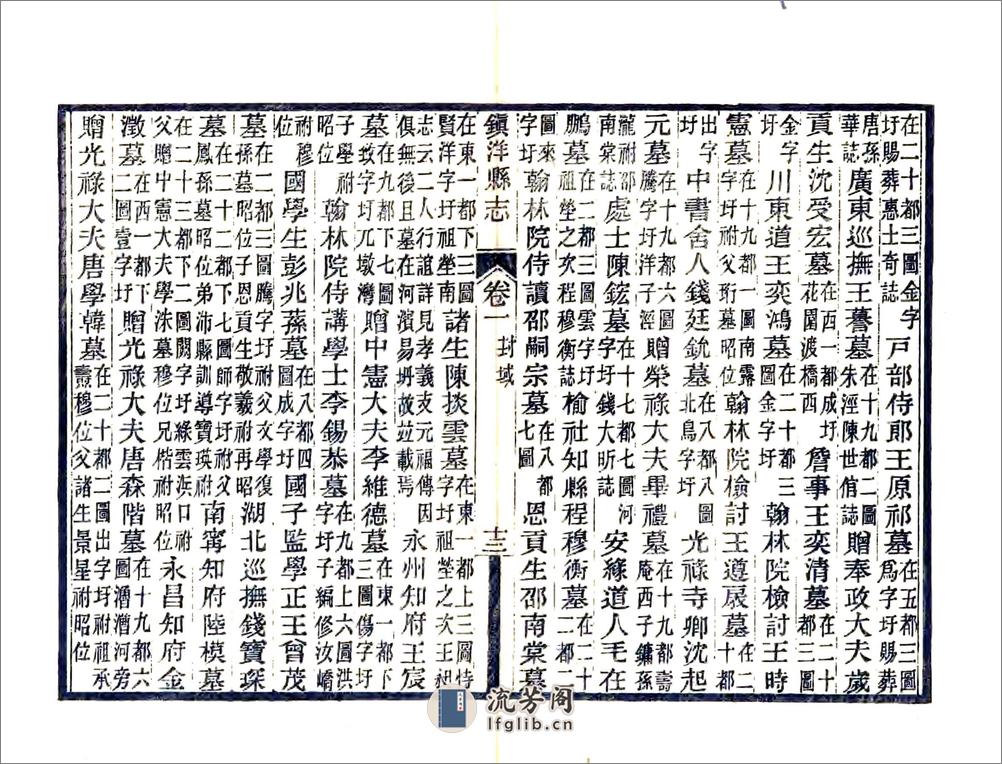 在二十都三圖金字圩賜葬惠士奇誌戸部侍郎王原祁墓在五都三圖爲字圩賜葬
唐孫華誌廣東巡撫王謩墓在十九都二圖朱涇陳世倌誌贈奉政大夫歲
貢生沈受宏墓在西一都成圩花園渡橋西詹事王奕清墓在二十都三圖
金字圩川東道王奕鴻墓在二十都三圖金字圩翰林院檢討王時
憲墓在十九都一圖南露字圩祔父珩墓昭位翰林院檢討王遵扆墓在二十二圖
出字圩中書舍人錢廷銃墓在八都八圖北鳥字圩光祿寺卿沈起
元墓在十九都六圖騰字圩洋子涇贈榮祿大夫畢禮墓在十九都壽庵西子鏞孫
瀧祔邵南棠誌處士陳鋐墓在十七都七圖河字圩錢大昕誌安綠道人毛在
鵬墓在二都三圖雲字圩祖塋之次程穆衡誌榆社知縣程穆衡墓在二十二都二
圖來字圩翰林院侍讀邵嗣宗墓在八都七圖恩貢生邵南棠墓
鎮洋縣志 卷一 封域 十三
在東一都下三圖賢字圩祖塋南諸生陳掞雲墓在東一都上三圖恃字圩祖塋之次王昶
志云二人行誼詳見孝義支元福傳因俱無後且墓在河濱易坍故竝載焉永州知府王宸
墓在九都下七圖致字圩兀墩灣贈中憲大夫李維德墓在東一都下三圖傷字圩
子壆祔昭位翰林院侍講學士李錫恭墓在九都上六圖洪字圩子編修汝嶠
祔穆位國學生彭兆蓀墓在八都四圖成字圩國子監學正王曾茂
墓在二都三圖騰字圩祔父文學復孫墓昭位子恩貢生敬羲祔再昭湖北巡撫錢寶琛
墓在二十二都下七圖師字圩祔父鳳孫墓昭位弟沛縣訓導寶瑛祔南寧知府陸模墓
在二十三都下二圖閼字圩綠雲浜口祔父贈中憲大夫學洙墓穆位兄楷祔昭位永昌知府金
澂墓在西一都下二圖壹字圩贈光祿大夫唐森階墓在十九都六圖漕河旁
贈光祿大夫唐學韓墓在二十都二圖出字圩祔祖承燾穆位父諸生景星祔昭位
流芳阁
lfglib.cn